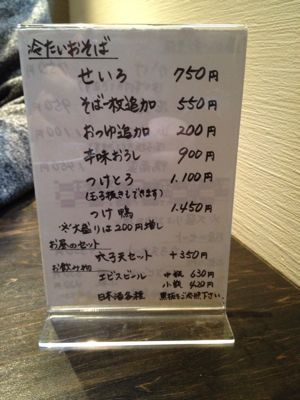 冷たいおそば
せいろ 750円
そば一枚追加 550円
おつゆ追加 200円
辛味おろし 900円
つけとろ 1.100円
(玉子抜きもできます)
つけ鴨 1.450円
※大盛りは200円増し
お昼のセット
穴子天セット +350円
お飲み物
エビスビール 中瓶 630円
小瓶 420円
日本酒各種 黒板をご参照下さい